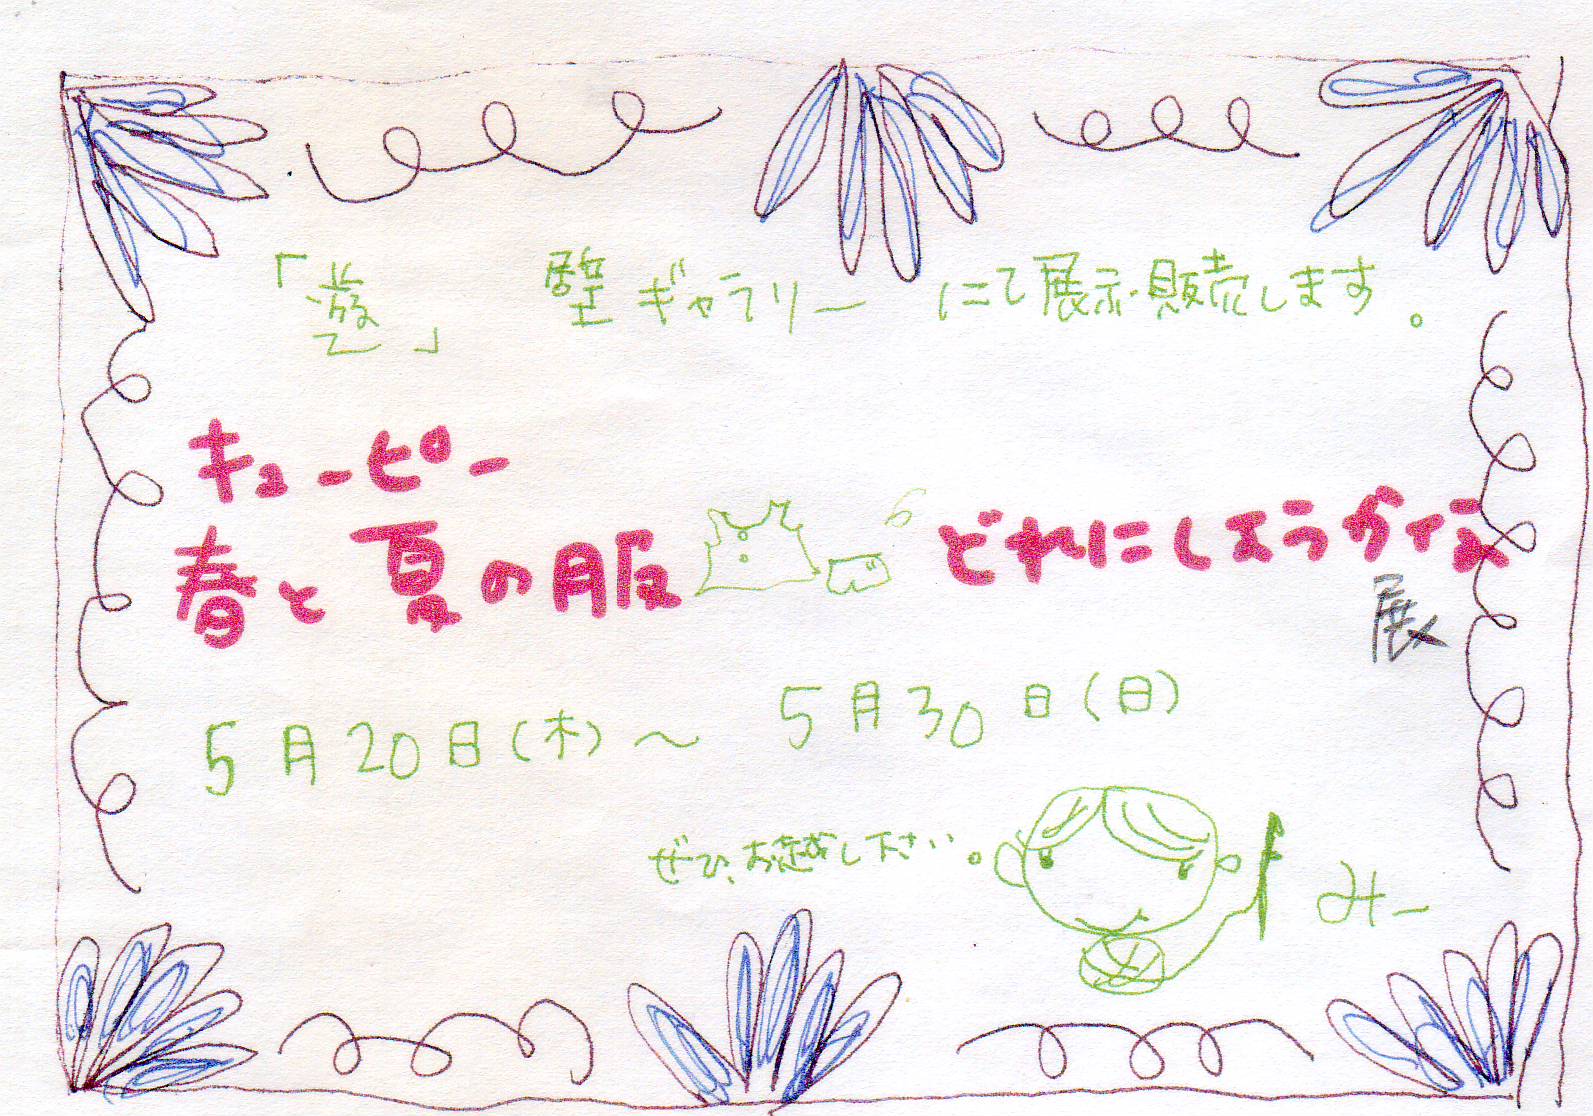 「遊」 壁ギャラリー にて展示・販売します。
キューピー
春と夏の服 どれにしようかイラ
展
5月20日(木)～ 5月30日(日)
ぜひ、お越し下さい。
みー